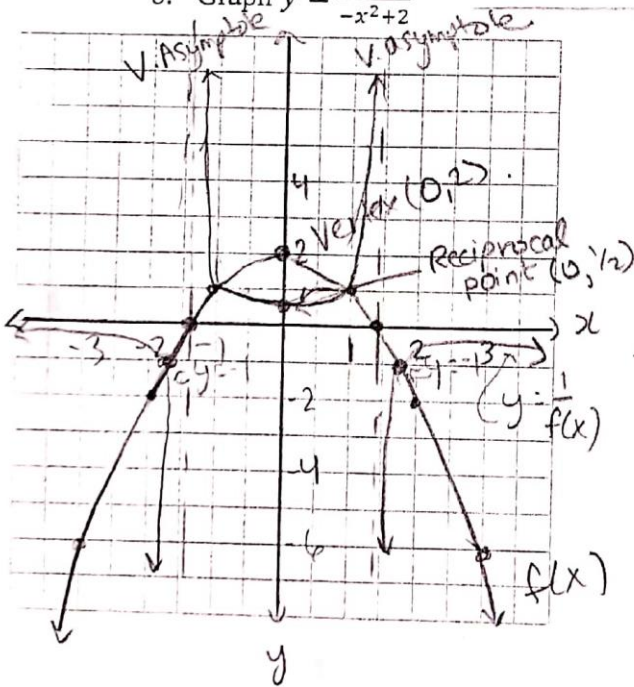 Graph y =
-x²+2
V. Asymptote
V. asymptote
4
Vertex (0,2)
2
Reciprocal
point (0, 1/2)
x
-3 -2 -1
1 2 3
y=-1
y=-1
y = 1/f(x)
-2
-4
-6
f(x)
y